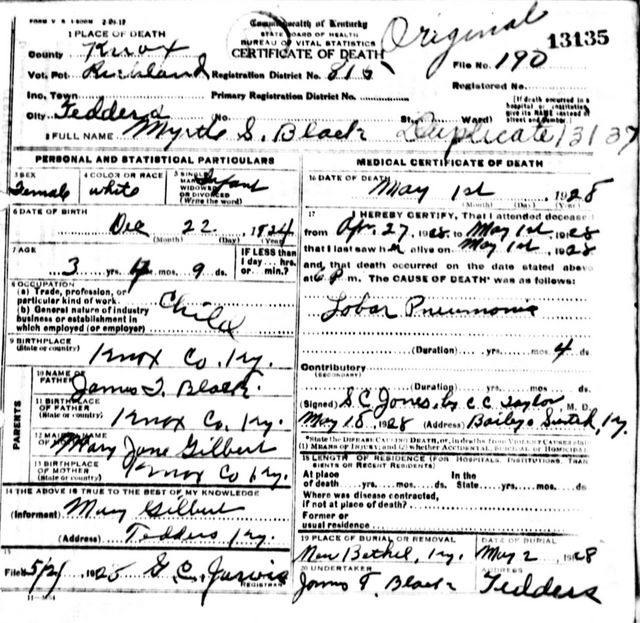 FORM V. S.
Original
13135
Commonwealth of Kentucky
STATE BOARD OF HEALTH
BUREAU OF VITAL STATISTICS
CERTIFICATE OF DEATH
1 PLACE OF DEATH
County Knox
File No. 190
Vot. Pct. Richland Registration District No. 815
Registered No.
Inc. Town Primary Registration District No.
City Tedders No. St. Ward)
[If death occurred in a hospital or institution, give its NAME instead of street and number.]
2 FULL NAME Myrtle S. Black
Duplicate 13137
PERSONAL AND STATISTICAL PARTICULARS
3 SEX Female
4 COLOR OR RACE white
5 SINGLE MARRIED WIDOWED OR DIVORCED (Write the word) Infant
6 DATE OF BIRTH
Dec 22, 1924
(Month) (Day) (Year)
7 AGE
3 yrs. 4 mos. 9 ds.
IF LESS than 1 day... hrs. or min.?
8 OCCUPATION
(a) Trade, profession, or particular kind of work
(b) General nature of industry business or establishment in which employed (or employer)
Child
9 BIRTHPLACE (State or country)
Knox Co. Ky.
PARENTS
10 NAME OF FATHER James T. Black
11 BIRTHPLACE OF FATHER (State or country)
Knox Co. Ky.
12 MAIDEN NAME OF MOTHER
Mary Jane Gilbert
13 BIRTHPLACE OF MOTHER (State or country)
Knox Co Ky.
14 THE ABOVE IS TRUE TO THE BEST OF MY KNOWLEDGE
(Informant) Mary Gilbert
(Address) Tedders Ky.
15
Filed 5/21 1928 G. C. Jarvis
REGISTRAR
MEDICAL CERTIFICATE OF DEATH
16 DATE OF DEATH
May 1st, 1928
(Month) (Day) (Year)
17 I HEREBY CERTIFY, That I attended deceased
from Apr. 27, 1928 to May 1st, 1928
that I last saw her alive on May 1st, 1928
and that death occurred on the date stated above
at 6 P. m. The CAUSE OF DEATH* was as follows:
Lobar Pneumonia
(Duration) yrs. mos. 4 ds.
Contributory (SECONDARY)
(Duration) yrs. mos. ds.
(Signed) S. C. Jones, by C. C. Taylor M. D.
May 18, 1928 (Address) Baileys Switch, Ky.
*State the DISEASE CAUSING DEATH, or, in deaths from VIOLENT CAUSES state
(1) MEANS OF INJURY; and (2) whether ACCIDENTAL, SUICIDAL or HOMICIDAL
18 LENGTH OF RESIDENCE (FOR HOSPITALS, INSTITUTIONS, TRANSIENTS OR RECENT RESIDENTS)
At place of death yrs. mos. ds. In the State yrs. mos. ds.
Where was disease contracted, if not at place of death?
Former or usual residence
19 PLACE OF BURIAL OR REMOVAL
New Bethel, Ky.
DATE OF BURIAL
May 2, 1928
20 UNDERTAKER
James T. Black
ADDRESS
Tedders